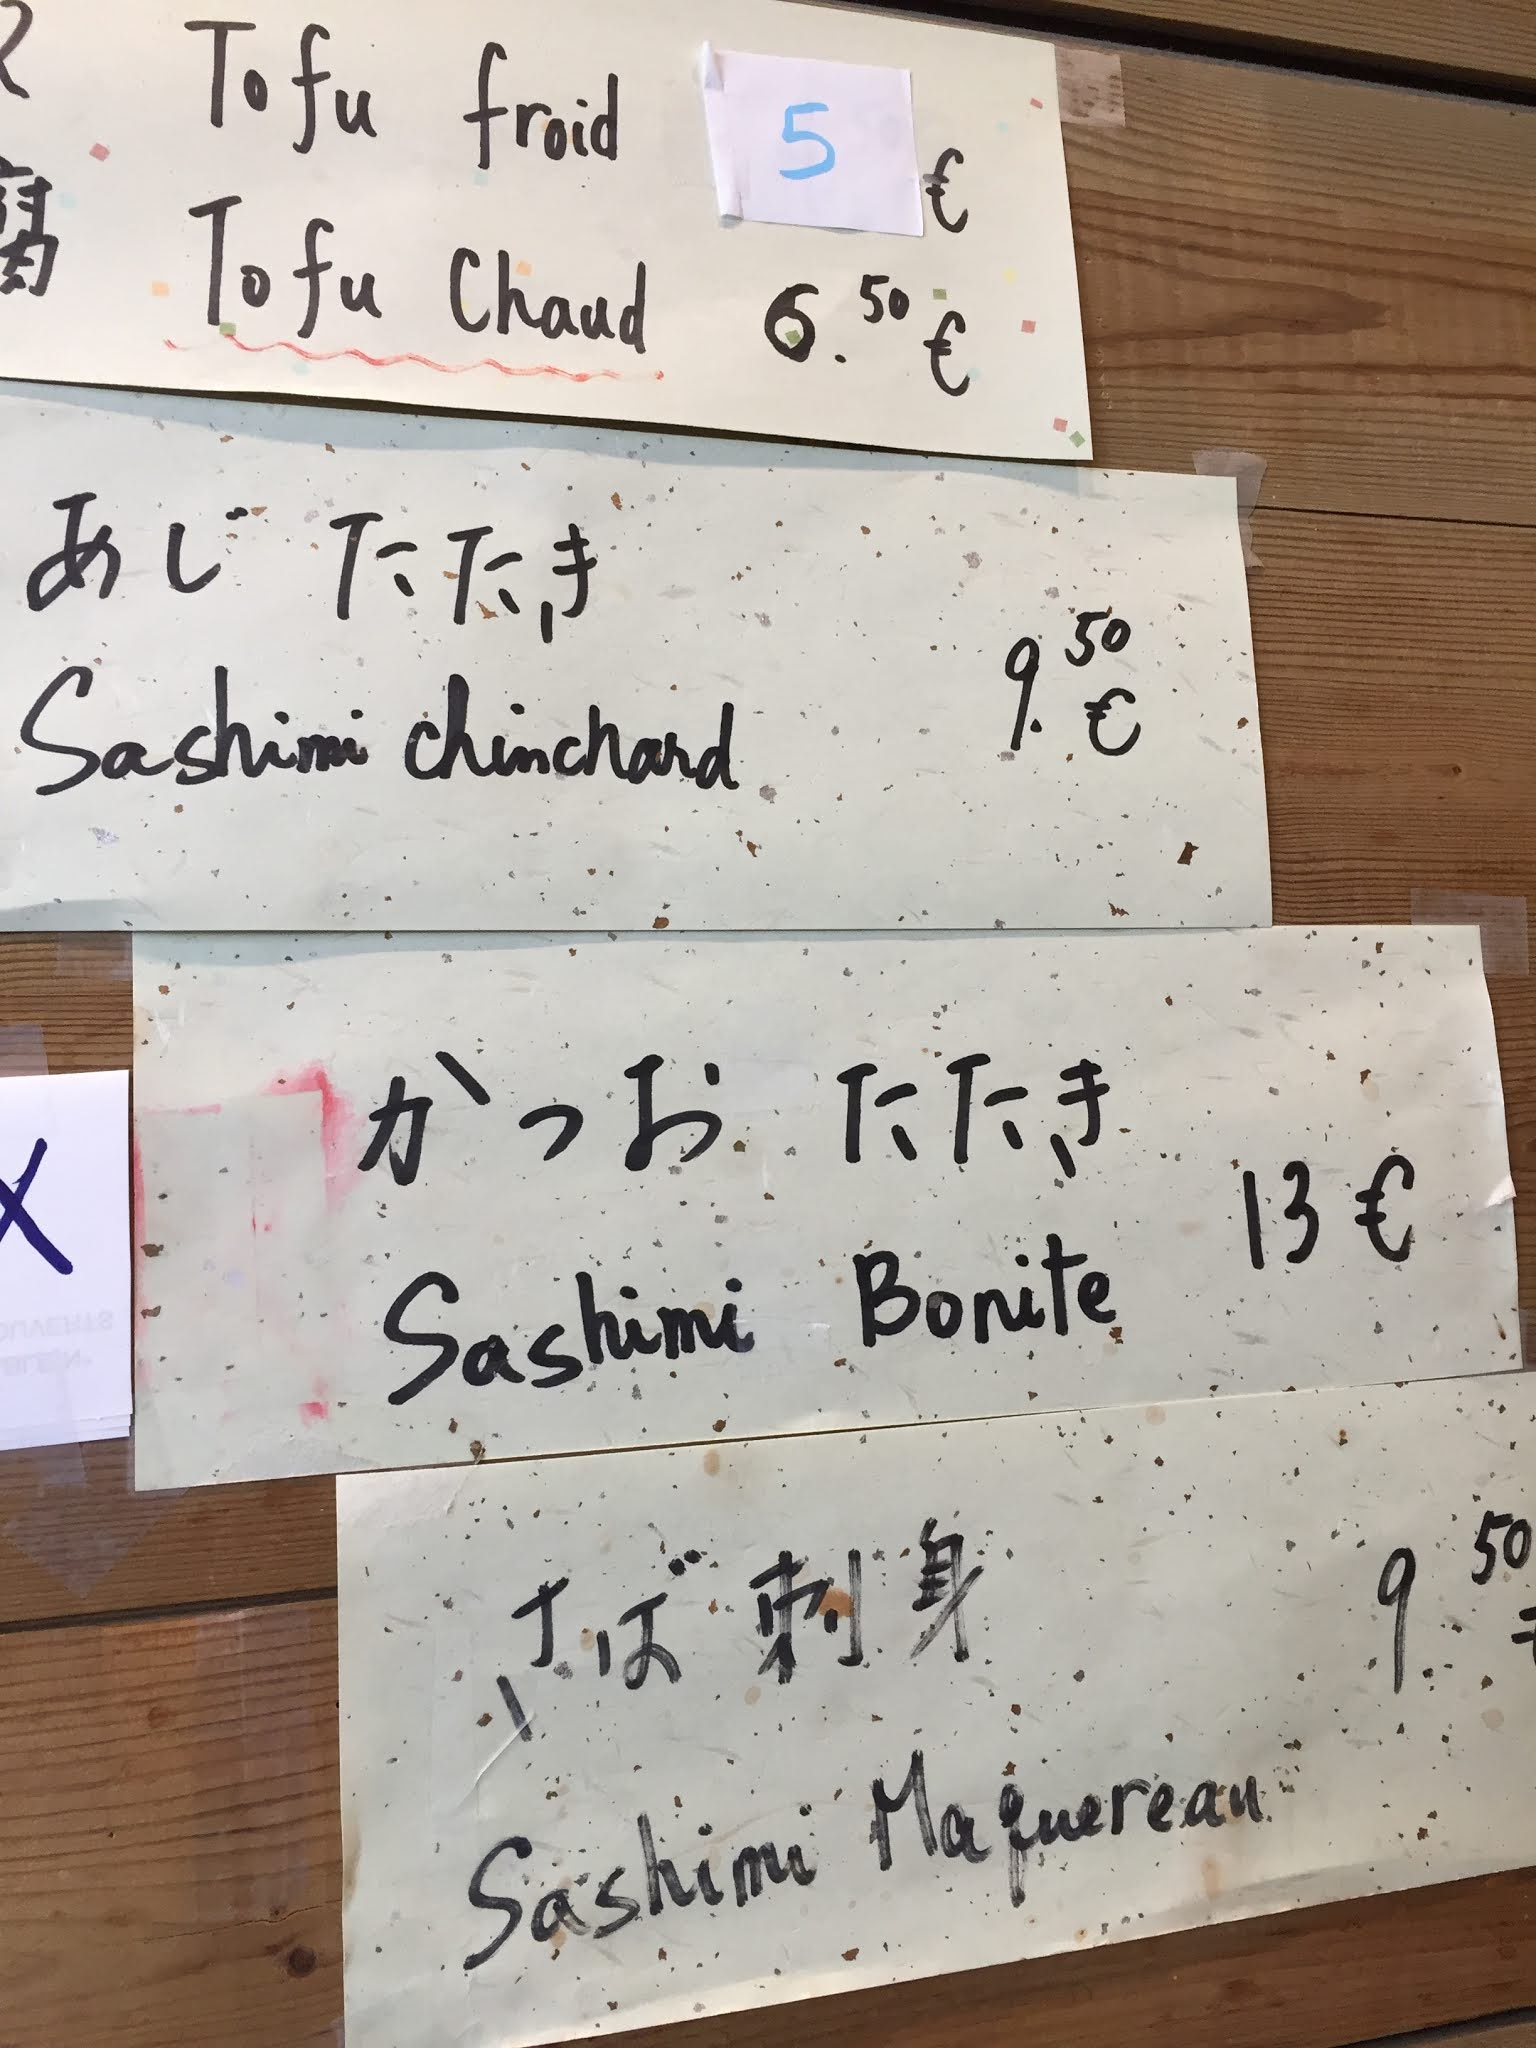 Tofu froid 5 €
腐 Tofu Chaud 6.50 €
あじ たたき
Sashimi chinchard 9.50 €
かつお たたき
Sashimi Bonite 13 €
X
さば 刺身 9.50 €
Sashimi Maquereau